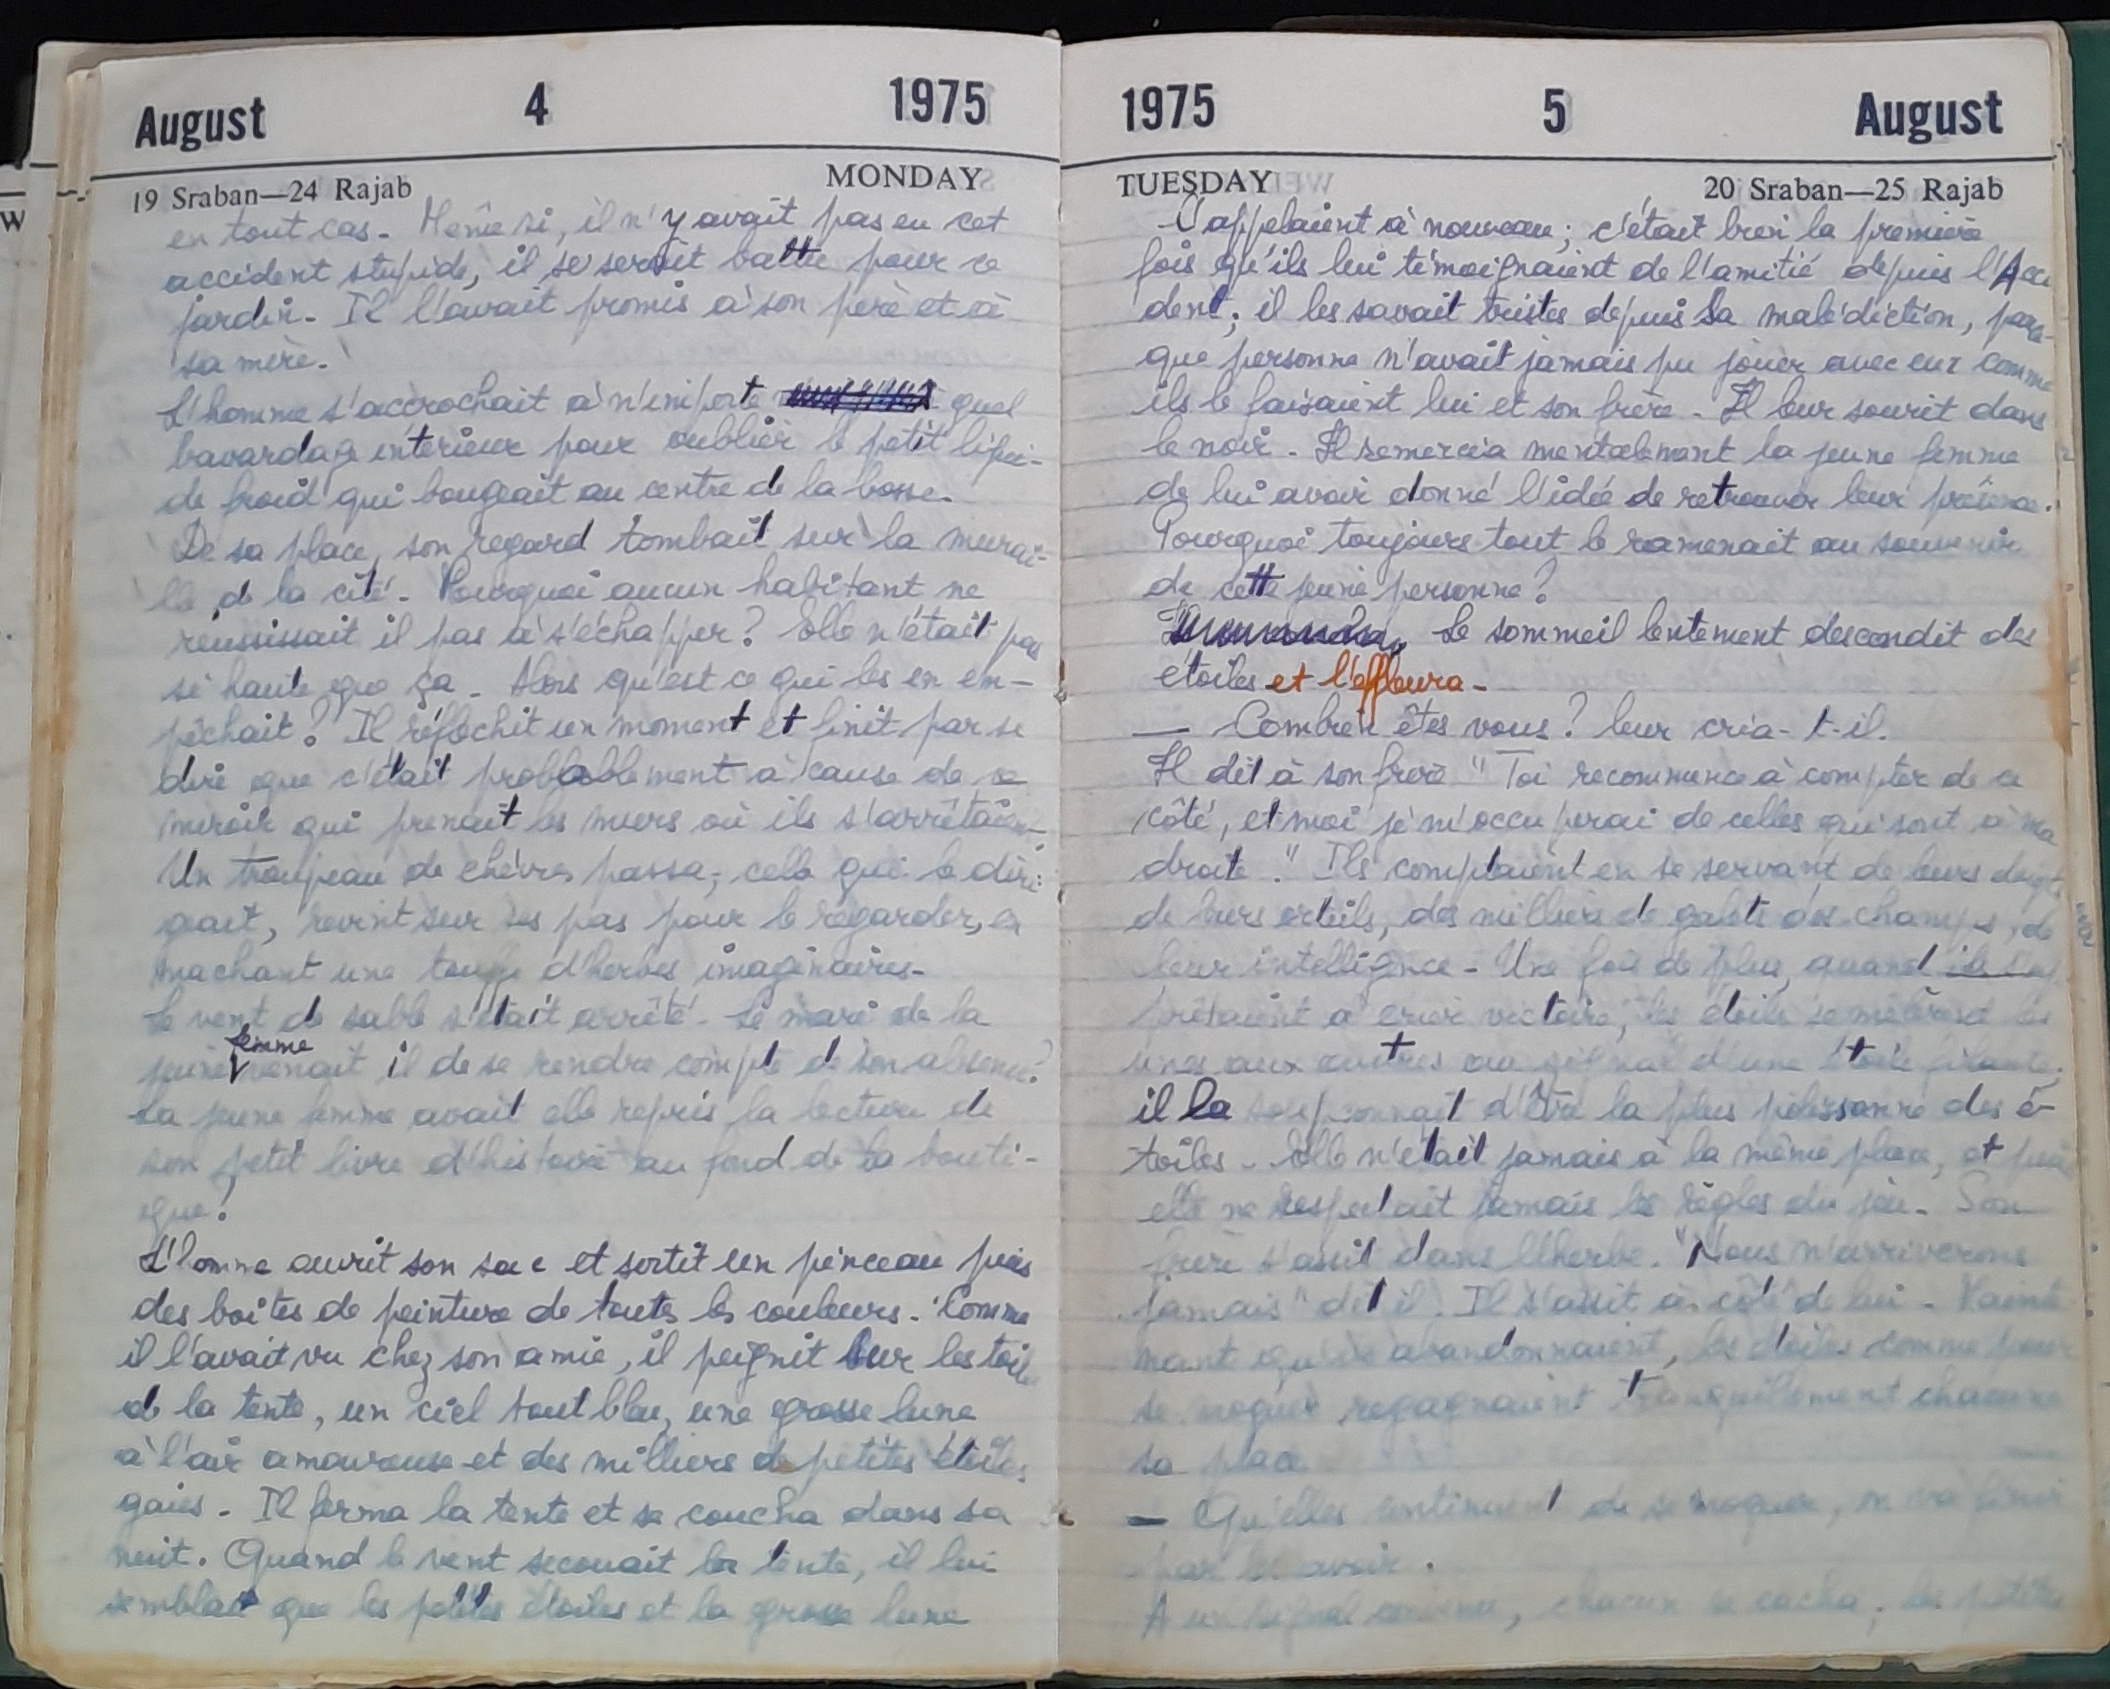 August 4 1975
19 Sraban—24 Rajab MONDAY
en tout cas. Même si, il n'y avait pas eu cet
accident stupide, il se serait battu pour ce
jardin. Il l'avait promis à son père et à
sa mère.
L'homme s'accrochait à n'importe quel
bavardage intérieur pour oublier le petit liqui-
de froid qui bougeait au centre de la bosse.
De sa place, son regard tombait sur la murai-
lle de la cité. Pourquoi aucun habitant ne
réussissait il pas à s'échapper? Elle n'était pas
si haute que ça. Alors qu'est ce qui les en em-
pêchait? Il réfléchit un moment et finit par se
dire que c'était probablement à cause de ce
miroir qui prenait les murs où ils s'arrêtaient
Un troupeau de chèvres passa, celle qui le diri-
geait, revint sur ses pas pour le regarder, en
machant une touffe d'herbes imaginaires.
Le vent de sable s'était arrêté. Le mari de la
jeune femme venait il de se rendre compte de son absence?
La jeune femme avait elle repris la lecture de
son petit livre d'histoire au fond de la bouti-
que?
L'homme ouvrit son sac et sortit un pinceau puis
des boites de peinture de toutes les couleurs. Comme
il l'avait vu chez son amie, il peignit sur les toiles
de la tente, un ciel tout bleu, une grosse lune
à l'air amoureuse et des milliers de petites étoiles
gaies. Il ferma la tente et se coucha dans sa
nuit. Quand le vent secouait la tente, il lui
semblait que les petites étoiles et la grosse lune
1975 5 August
TUESDAY 20 Sraban—25 Rajab
l'appelaient à nouveau; c'était bien la première
fois qu'ils lui témoignaient de l'amitié depuis l'Acci
dent; il les savait tristes depuis sa malédiction, parce
que personne n'avait jamais pu jouer avec eux comme
ils le faisaient lui et son frère. Il leur sourit dans
le noir. Il remercia mentalement la jeune femme
de lui avoir donné l'idée de retrouver leur présence.
Pourquoi toujours tout le ramenait au souvenir
de cette jeune personne?
Le sommeil lentement descendit des
étoiles et l'effleura.
— Combien êtes vous? leur cria-t-il.
Il dit à son frère "Toi recommence à compter de ce
côté, et moi je m'occuperai de celles qui sont à ma
droite." Ils comptaient en se servant de leurs doigts
de leurs orteils, des milliers de galets des champs, de
leur intelligence. Une fois de plus, quand
prêtaient à crier victoire, les étoiles se mêlèrent les
unes aux autres au signal d'une étoile filante,
il la soupçonnait d'être la plus polissonne des é-
toiles. Elle n'était jamais à la même place, et puis
elle ne respectait jamais les règles du jeu. Son
frère s'assit dans l'herbe. "Nous n'arriverons
jamais" dit il. Il s'assit à côté de lui. Mainte
nant qu'ils abandonnaient, les étoiles comme pour
se moquer regagnaient tranquillement chacune
sa place
— Qu'elles continuent de se moquer, on va finir
par les avoir.
A un signal convenu, chacun se cacha, les petites